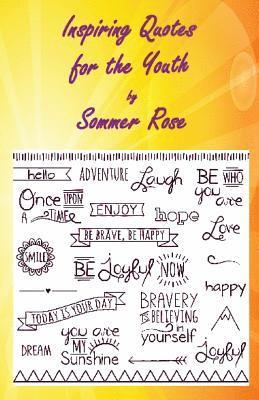 Inspiring Quotes
for the Youth
by
Sommer Rose
hello
ADVENTURE
Laugh
BE WHO
you are
Once UPON
A TIME
ENJOY
hope
Love
BE BRAVE, BE HAPPY
SMILE
BE Joyful
NOW
happy
TODAY IS YOUR DAY
BRAVERY
IS BELIEVING
in
yourself
you are
MY
Sunshine
DREAM
Joyful